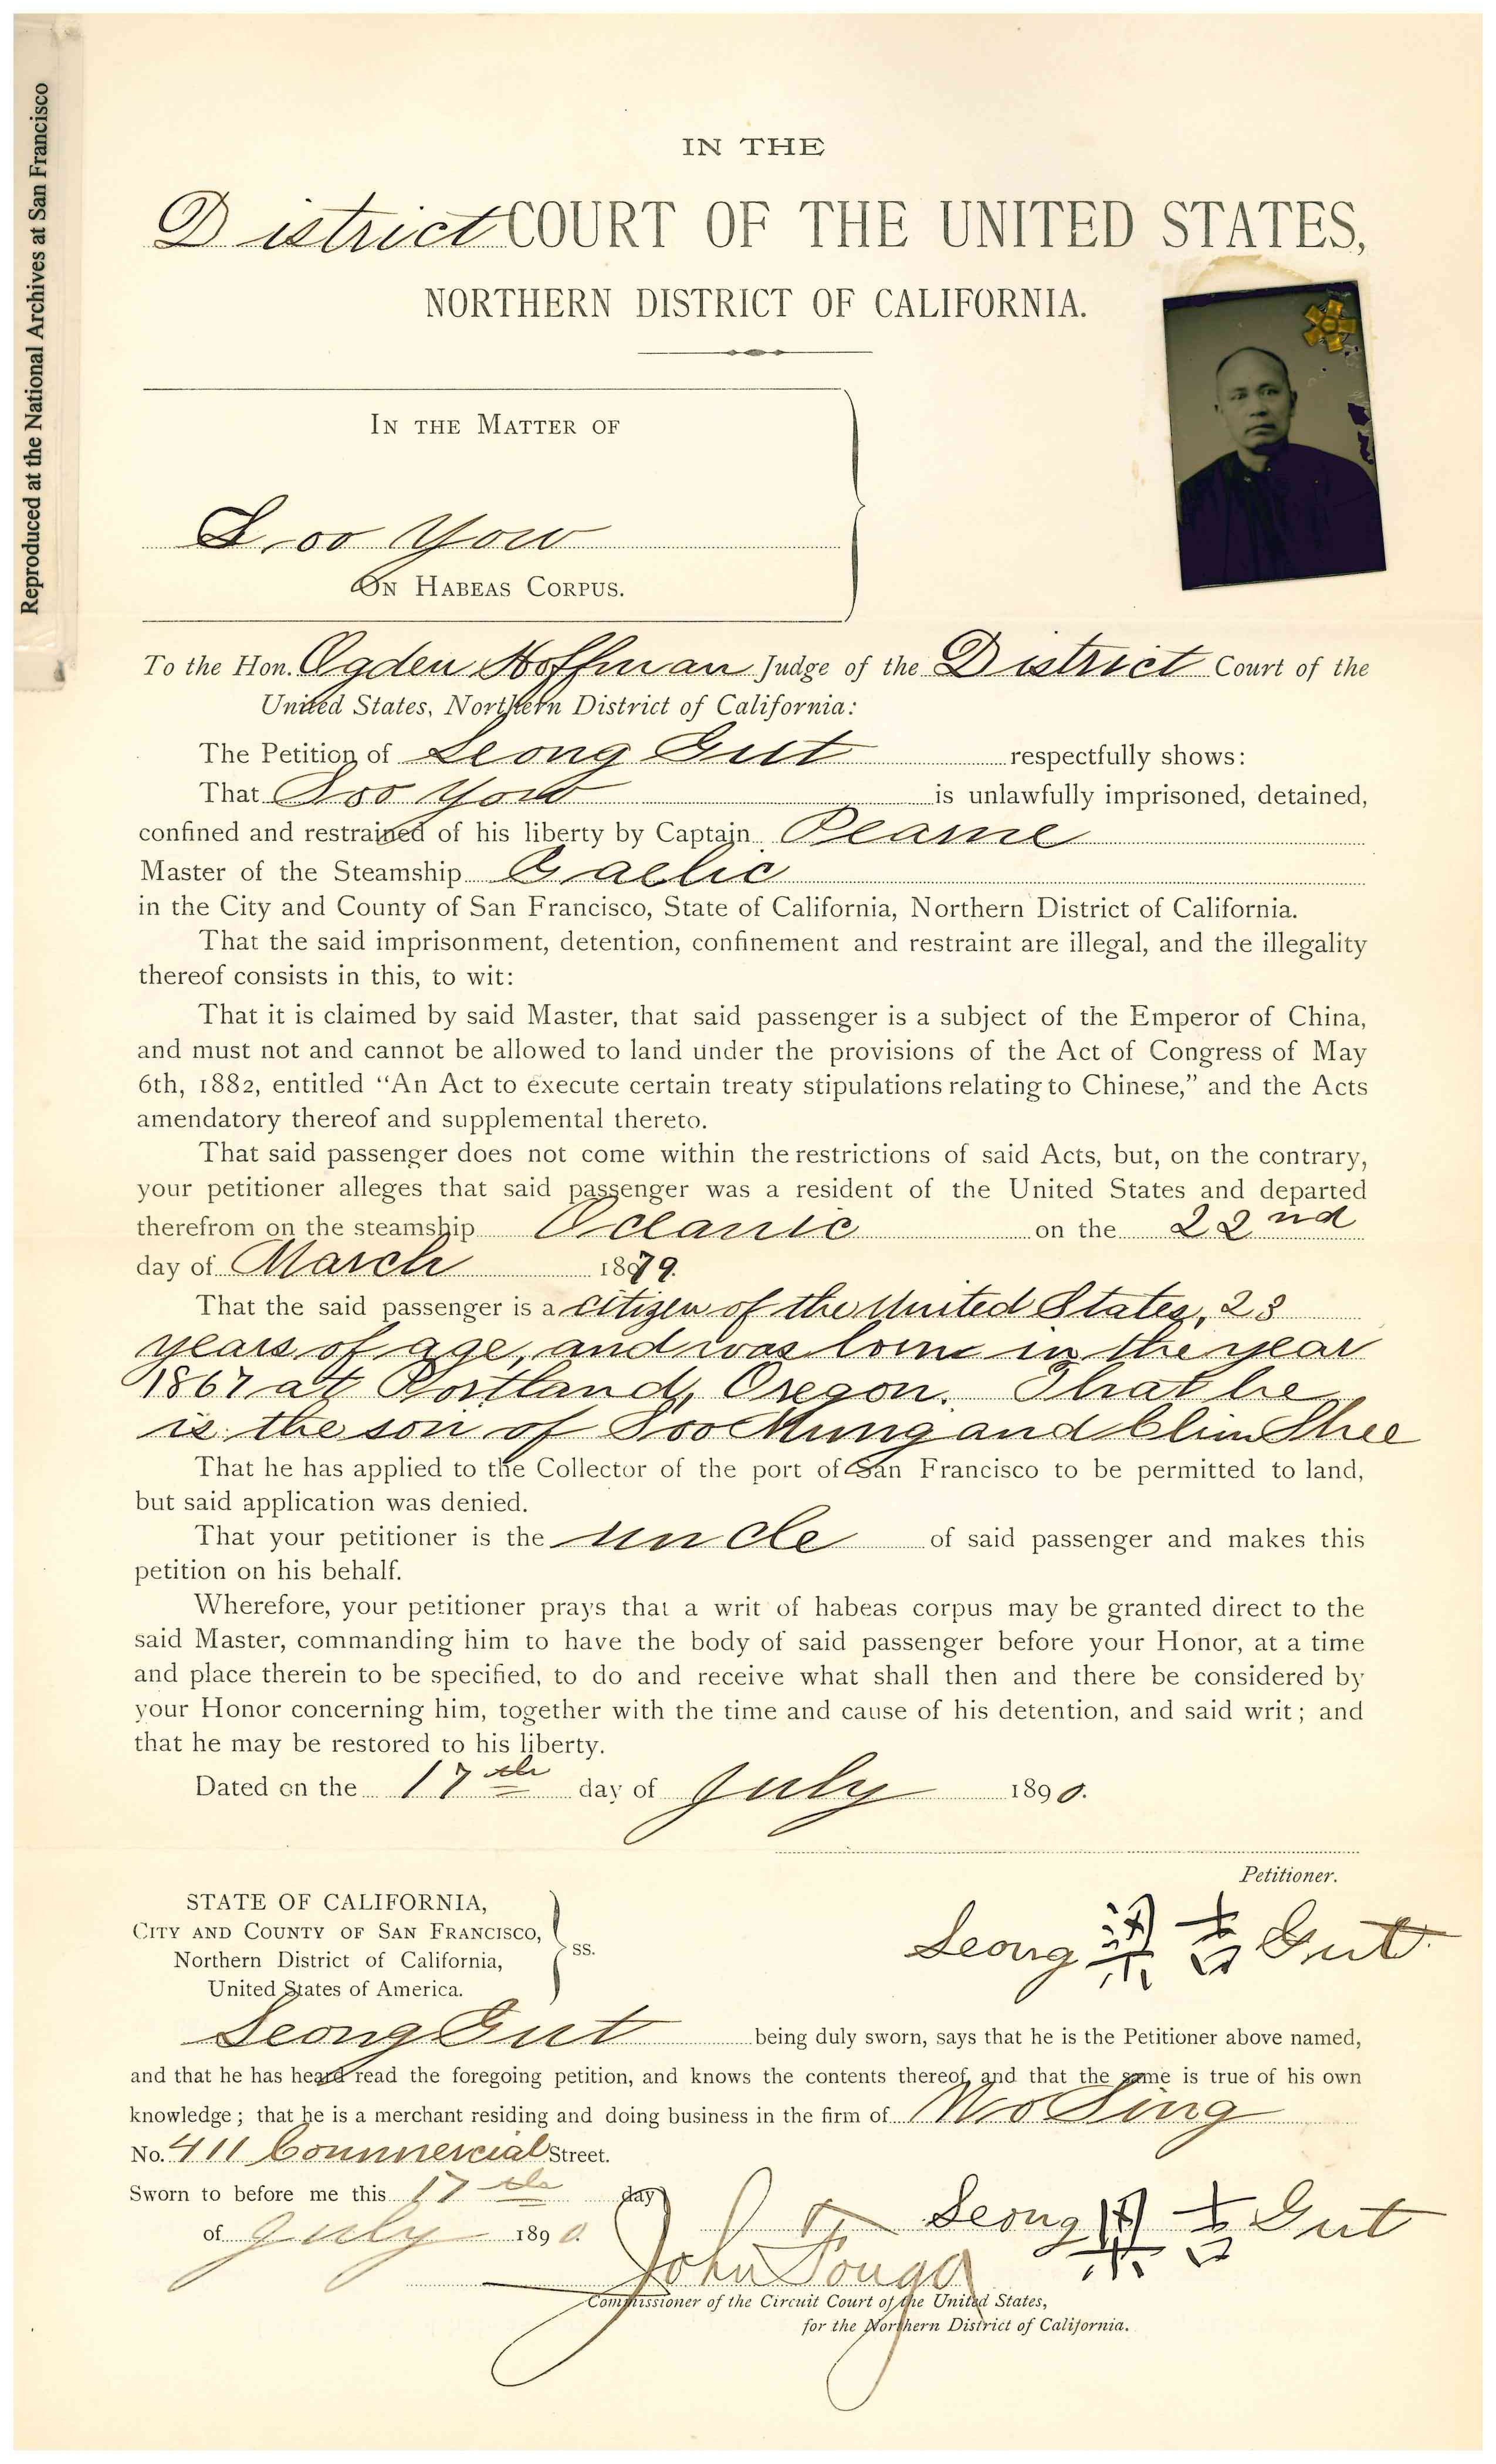 Reproduced at the National Archives at San Francisco
IN THE
District COURT OF THE UNITED STATES,
NORTHERN DISTRICT OF CALIFORNIA.
IN THE MATTER OF
Soo Yow
ON HABEAS CORPUS.
To the Hon. Ogden Hoffman Judge of the District Court of the
United States, Northern District of California:
The Petition of Leong Gut respectfully shows:
That Soo Yow is unlawfully imprisoned, detained,
confined and restrained of his liberty by Captain Pearne
Master of the Steamship Gaelic
in the City and County of San Francisco, State of California, Northern District of California.
That the said imprisonment, detention, confinement and restraint are illegal, and the illegality
thereof consists in this, to wit:
That it is claimed by said Master, that said passenger is a subject of the Emperor of China,
and must not and cannot be allowed to land under the provisions of the Act of Congress of May
6th, 1882, entitled “An Act to execute certain treaty stipulations relating to Chinese,” and the Acts
amendatory thereof and supplemental thereto.
That said passenger does not come within the restrictions of said Acts, but, on the contrary,
your petitioner alleges that said passenger was a resident of the United States and departed
therefrom on the steamship Oceanic on the 22nd
day of March 1879.
That the said passenger is a citizen of the United States, 23
years of age, and was born in the year
1867 at Portland, Oregon. That he
is the son of Soo Mung and Chin Shee
That he has applied to the Collector of the port of San Francisco to be permitted to land,
but said application was denied.
That your petitioner is the uncle of said passenger and makes this
petition on his behalf.
Wherefore, your petitioner prays that a writ of habeas corpus may be granted direct to the
said Master, commanding him to have the body of said passenger before your Honor, at a time
and place therein to be specified, to do and receive what shall then and there be considered by
your Honor concerning him, together with the time and cause of his detention, and said writ; and
that he may be restored to his liberty.
Dated on the 17th day of July 1890.
Petitioner.
Leong 梁吉 Gut
STATE OF CALIFORNIA,
CITY AND COUNTY OF SAN FRANCISCO,
Northern District of California,
United States of America.
ss.
Leong Gut being duly sworn, says that he is the Petitioner above named,
and that he has heard read the foregoing petition, and knows the contents thereof, and that the same is true of his own
knowledge; that he is a merchant residing and doing business in the firm of Wo Sing
No. 411 Commercial Street.
Sworn to before me this 17th day
of July 1890.
Leong 梁吉 Gut
John Fouga
Commissioner of the Circuit Court of the United States,
for the Northern District of California.